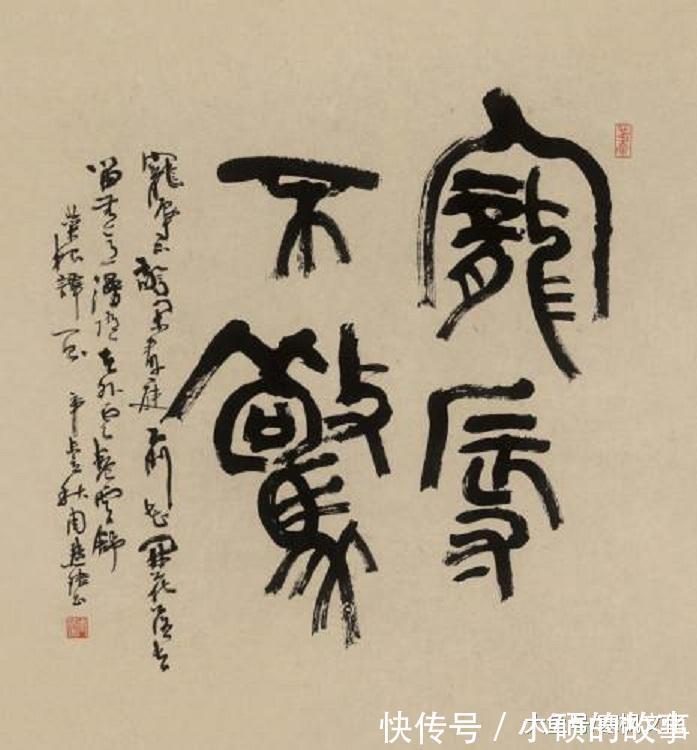 寵辱
不驚
寵辱不驚閑看庭前花開花落去
留無意漫隨天外雲卷雲舒
菜根譚句 辛 秋周
快传号 / 小 的故事